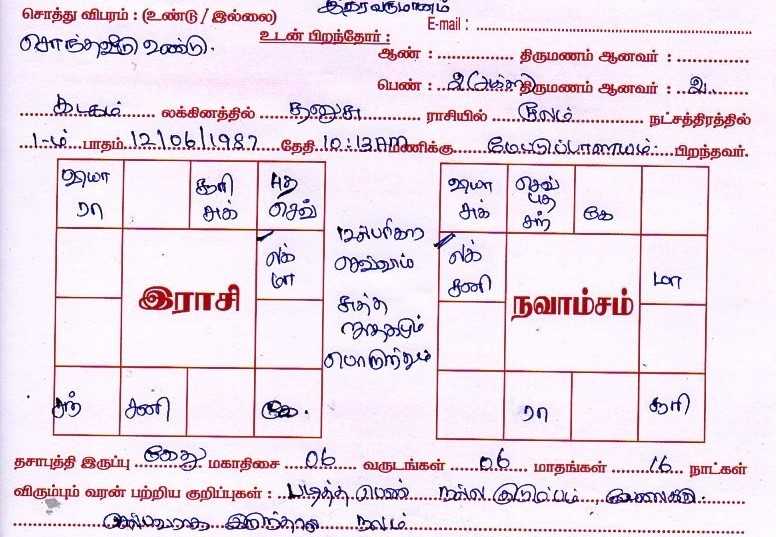 சொத்து விபரம் : (உண்டு / இல்லை) E-mail :
சொந்தவீடு உண்டு. உடன் பிறந்தோர் :
ஆண் : திருமணம் ஆனவர் :
பெண் : 2 (அக்கா) திருமணம் ஆனவர் : 2.
கடகம் லக்கினத்தில் தனுசு ராசியில் மூலம் நட்சத்திரத்தில்
1-ம் பாதம் 12/06/1987 தேதி 10:13AM மணிக்கு மேட்டுப்பாளையம் பிறந்தவர்.
குரு ரா
சூரி சுக்
புத செவ்
லக் மா
இராசி
சந்
சனி
கே.
பரிகார செவ்வாய்
சுத்த ஜாதகமும் பொருந்தும்
குரு சுக்
செவ் புத சந்
கே
லக் சனி
மா
நவாம்சம்
ரா
சூரி
தசாபுத்தி இருப்பு கேது மகாதிசை 06 வருடங்கள் 06 மாதங்கள் 16 நாட்கள்
விரும்பும் வரன் பற்றிய குறிப்புகள் : படித்த பெண் நல்ல குடும்பம்
இருந்தால் நலம்